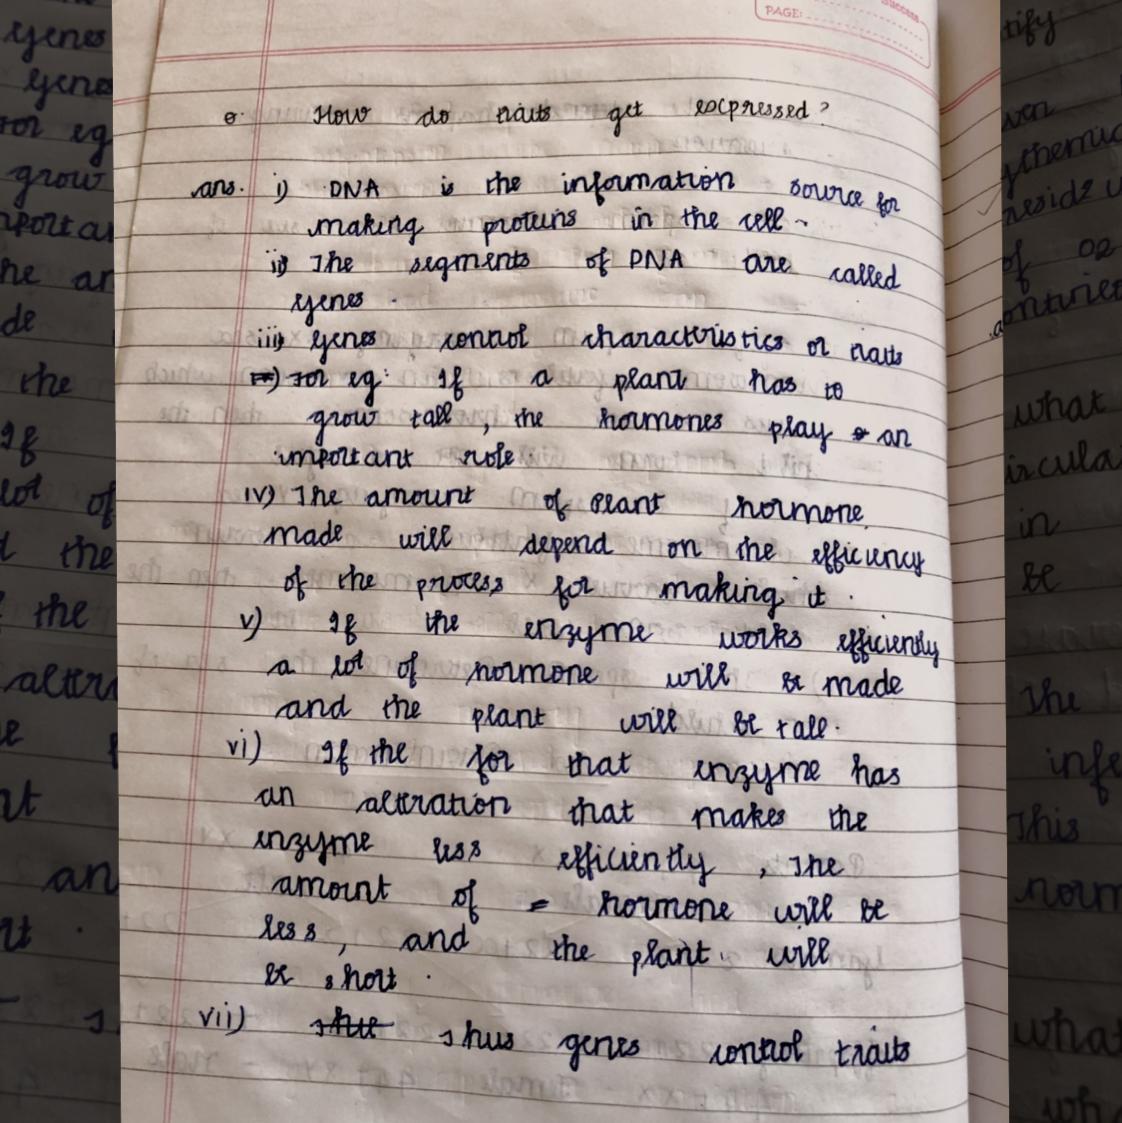 PAGE:
Q. How do traits get expressed?
ans. i) DNA is the information source for
making proteins in the cell.
ii) The segments of DNA are called
genes.
iii) genes control characteristics or traits
For eg: If a plant has to
grow tall, the hormones play an
important role.
iv) The amount of plant hormone
made will depend on the efficiency
of the process for making it.
v) If the enzyme works efficiently
a lot of hormone will be made
and the plant will be tall.
vi) If the for that enzyme has
an alteration that makes the
enzyme less efficiently, The
amount of hormone will be
less, and the plant will
be short.
vii) Thus genes control traits